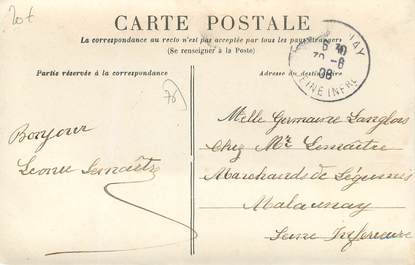 20t
CARTE POSTALE
La correspondance au recto n'est pas acceptée par tous les pays étrangers
(Se renseigner à la Poste)
Partie réservée à la correspondance
Adresse du destinataire
AY
6 30
30 -8
08
SEINE INFRE
76
Bonjour
Leonie Lemaître
Melle Germaine Langlois
Chez Mr Lemaitre
Marchands de Légumes
Malaunay
Seine Inférieure